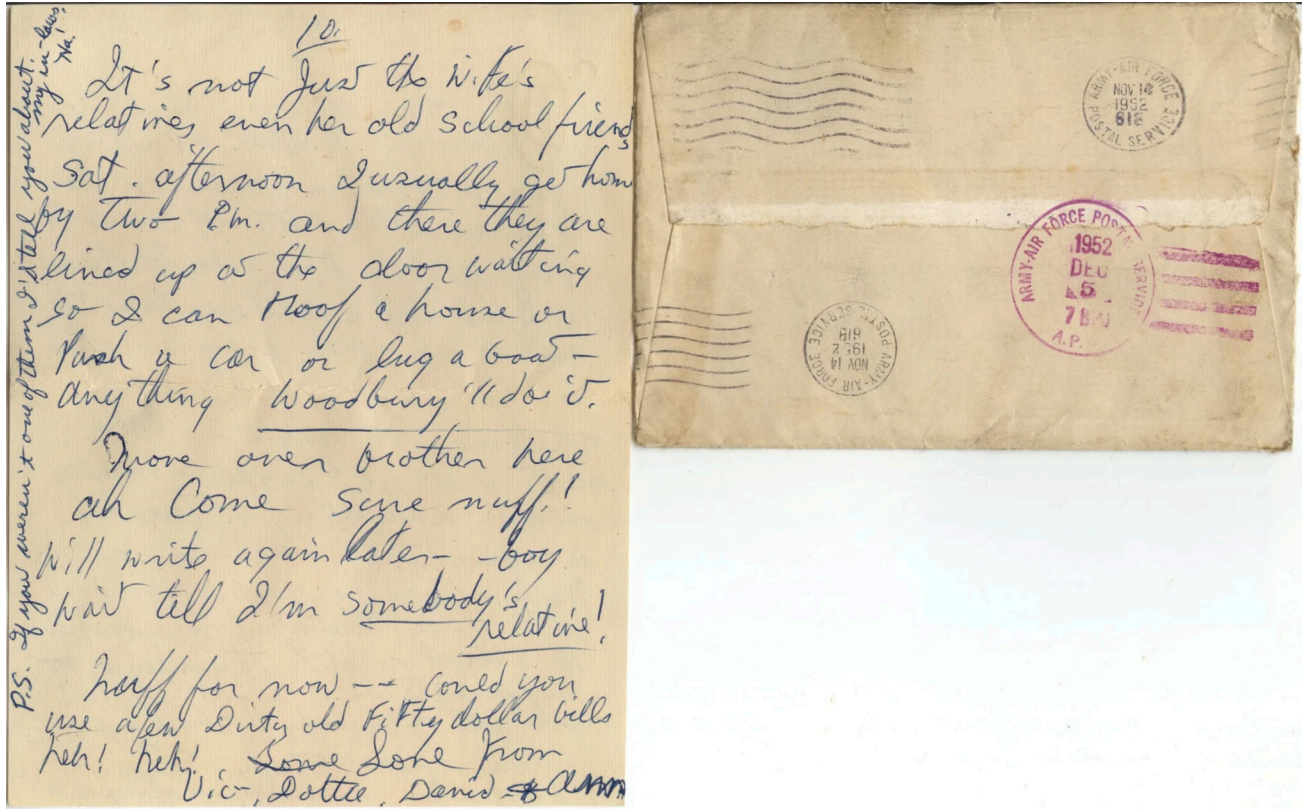 10.
It's not Just the Wife's
relatives even her old school friends
Sat. afternoon I usually get home
by Two P.m. and there they are
lined up at the door waiting
so I can Roof a house or
Push a car or lug a boat -
Any thing Woodbury 'll do it.
Move over brother here
ah Come sure nuff!
Will write again later - - boy
wait till I'm somebody's
relative!
Nuff for now -- could you
use a few Dirty old Fifty dollar bills
heh! heh! Love From
Vic, Dottie, David & Ann
P.S. If you weren't one of them I'd tell you about
my in-laws.
Ha!
ARMY-AIR FORCE POSTAL SERVICE
NOV 14
1952
618
ARMY-AIR FORCE POSTAL SERVICE
1952
DEC
5
A.P.
ARMY-AIR FORCE POSTAL SERVICE
NOV 14
1952
618